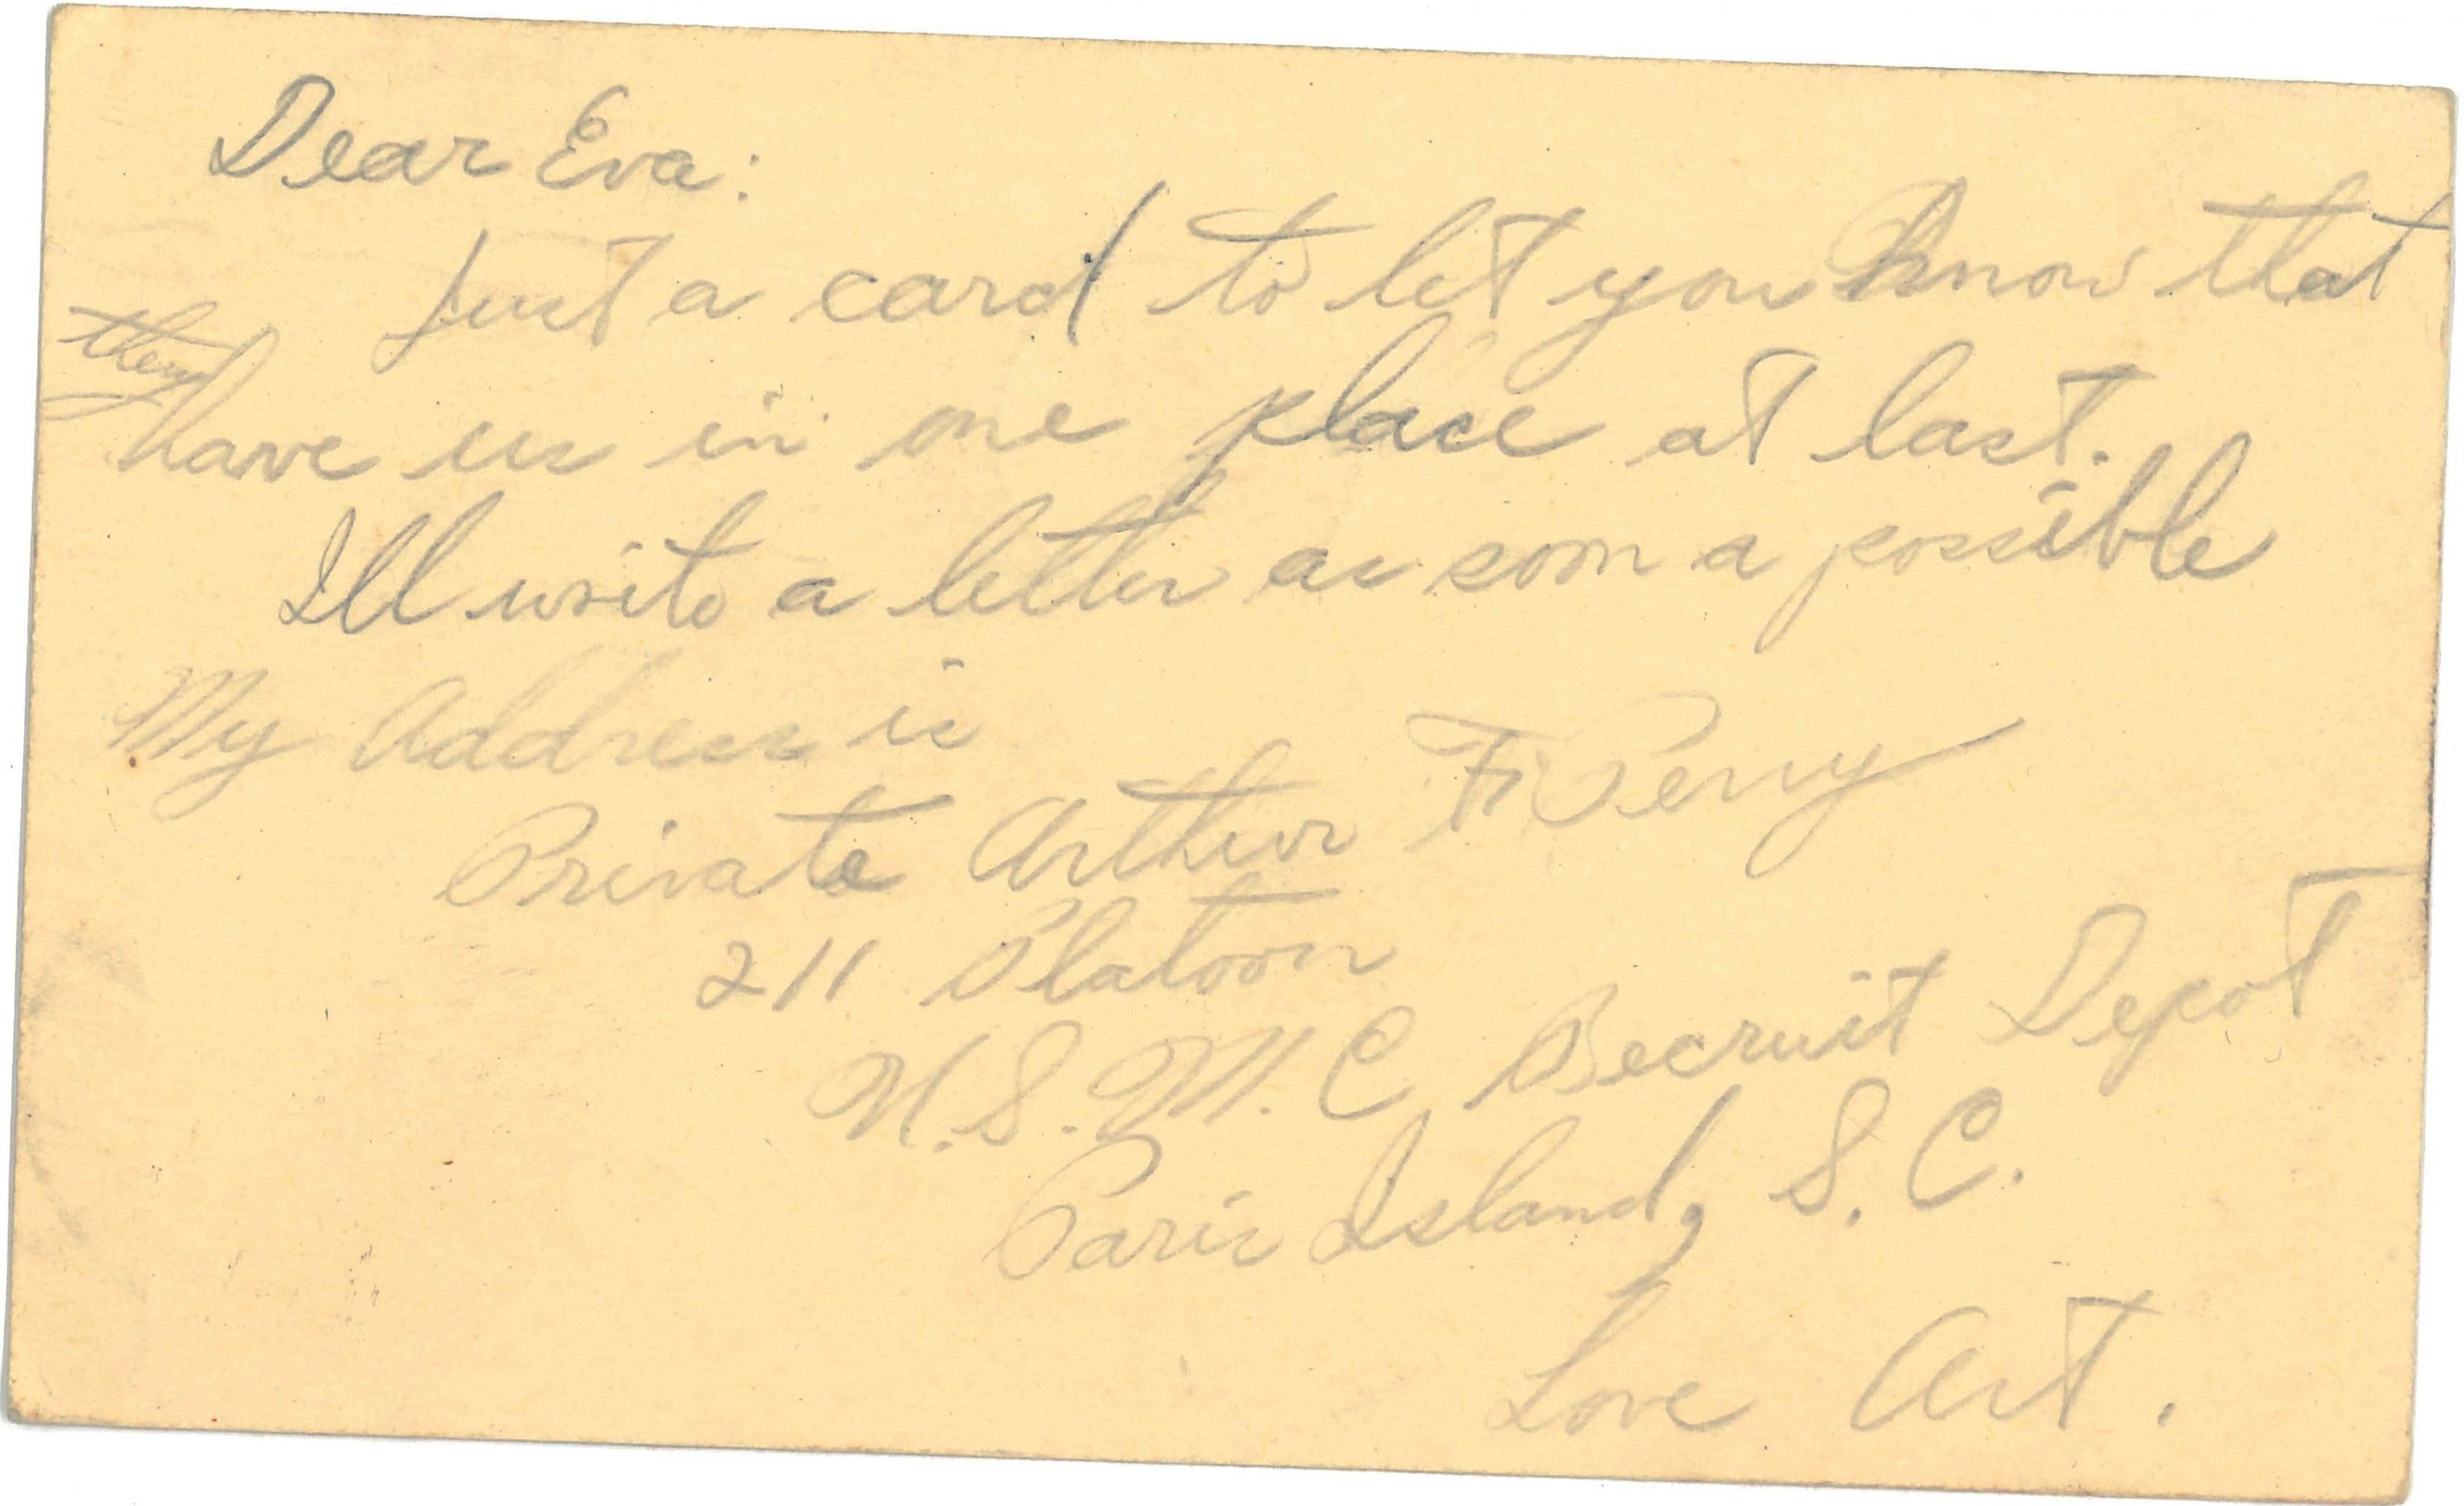 Dear Eva:
Just a card to let you know that
they
have us in one place at last.
Ill write a letter as soon a possible
My Address is
Private Arthur F. Perry
211 Platoon
U.S.M.C Recruit Depot
Paris Island, S.C.
Love Art.